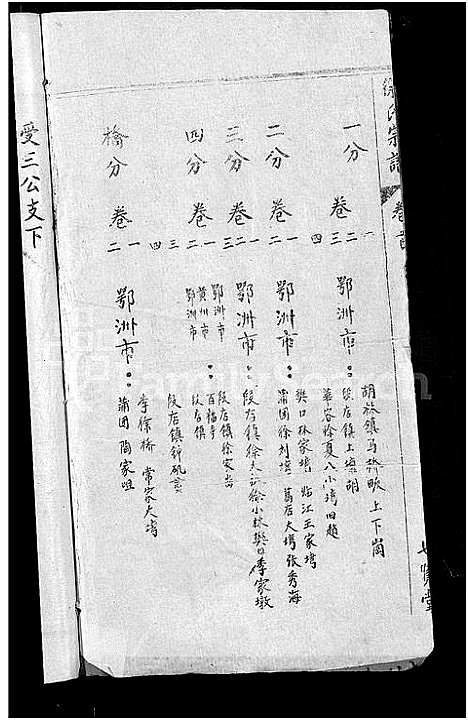 徐氏宗譜 卷首
七賢堂
一分 卷 一 二 三 四 鄂洲市：
胡林鎮馬橋畈上下崗
段店鎮上海胡
華容徐夏八小塆旧趙
二分 卷 一 二 鄂洲市：
樊口林家塆 临江王家塆
蒲团徐刘塆 葛店大塆張秀海
三分 卷 一 二 三 鄂洲市：
段店鎮徐大 徐小林樊口李家墩
四分 卷 一 二 三 四
鄂洲市： 段店鎮徐家
黄州市： 百福寺
鄂洲市 段店鎮
段店鎮
橋分 卷 一 二 鄂洲市：
李徐橋 常家大塆
蒲团 陶家咀
受三公支下